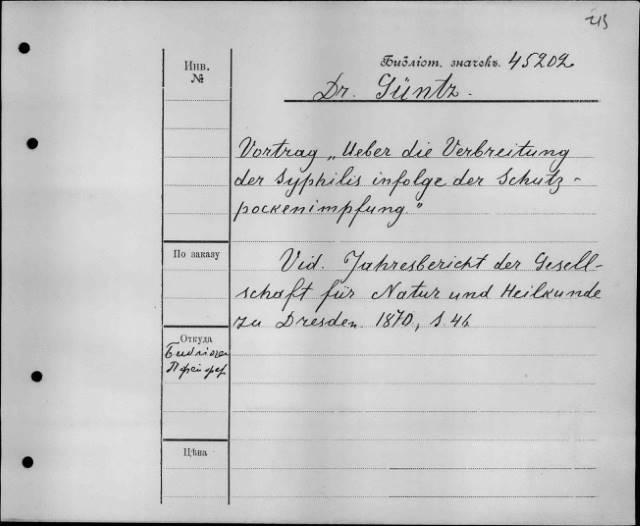 Инв.
№
Библіот. значекъ. 45202
Dr. Güntz.
Vortrag „Ueber die Verbreitung
der Syphilis infolge der Schutz-
pockenimpfung."
По заказу
Vid. Jahresbericht der Gesell-
schaft für Natur und Heilkunde
zu Dresden. 1870, S. 46
Откуда
Цѣна